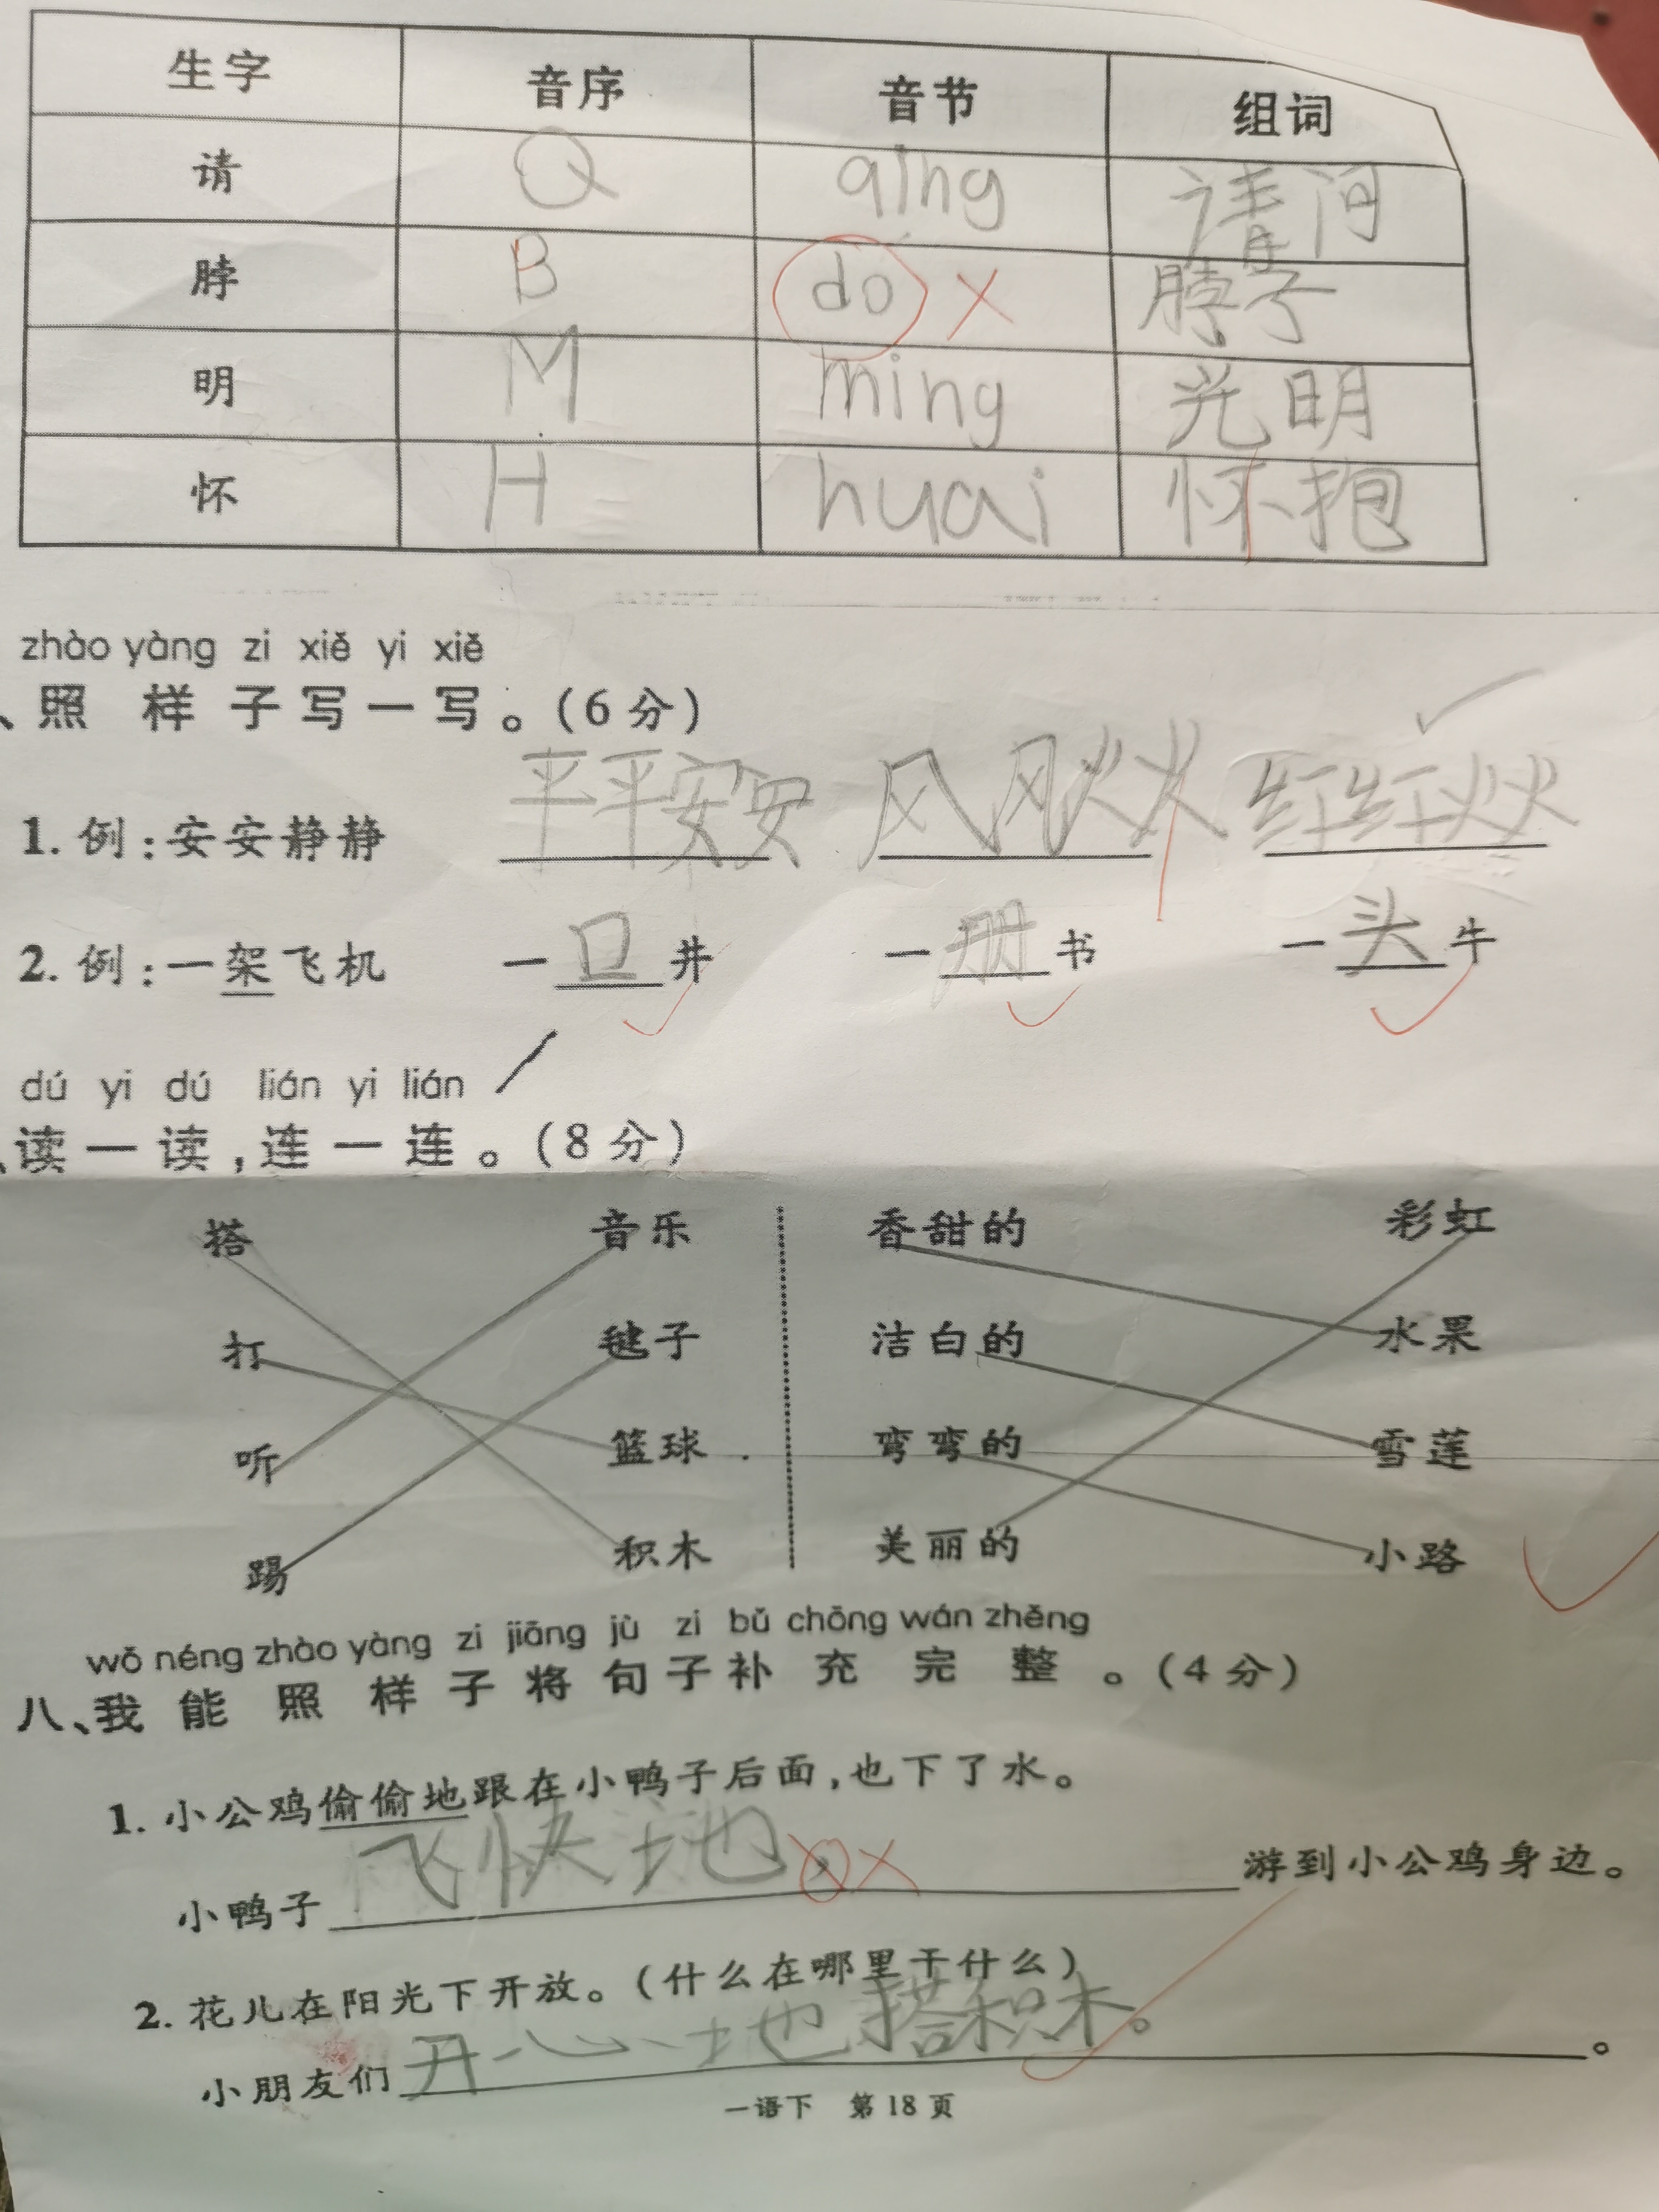 生字 音序 音节 组词
请 Q qing 请问
脖 B do 脖子
明 M ming 光明
怀 H huai 怀抱
zhào yàng zi xiě yi xiě
、照样子写一写。(6分)
1. 例:安安静静 平平安安 风风火火 红红火火
2. 例:一架飞机 一口井 一册书 一头牛
dú yi dú lián yi lián
、读一读,连一连。(8分)
搭 音乐 香甜的 彩虹
打 毽子 洁白的 水果
听 篮球 弯弯的 雪莲
踢 积木 美丽的 小路
wǒ néng zhào yàng zi jiāng jù zi bǔ chōng wán zhěng
八、我能照样子将句子补充完整。(4分)
1. 小公鸡偷偷地跟在小鸭子后面,也下了水。
小鸭子飞快地,游到小公鸡身边。
2. 花儿在阳光下开放。(什么在哪里干什么)
小朋友们开心地搭积木。。
一语下 第18页